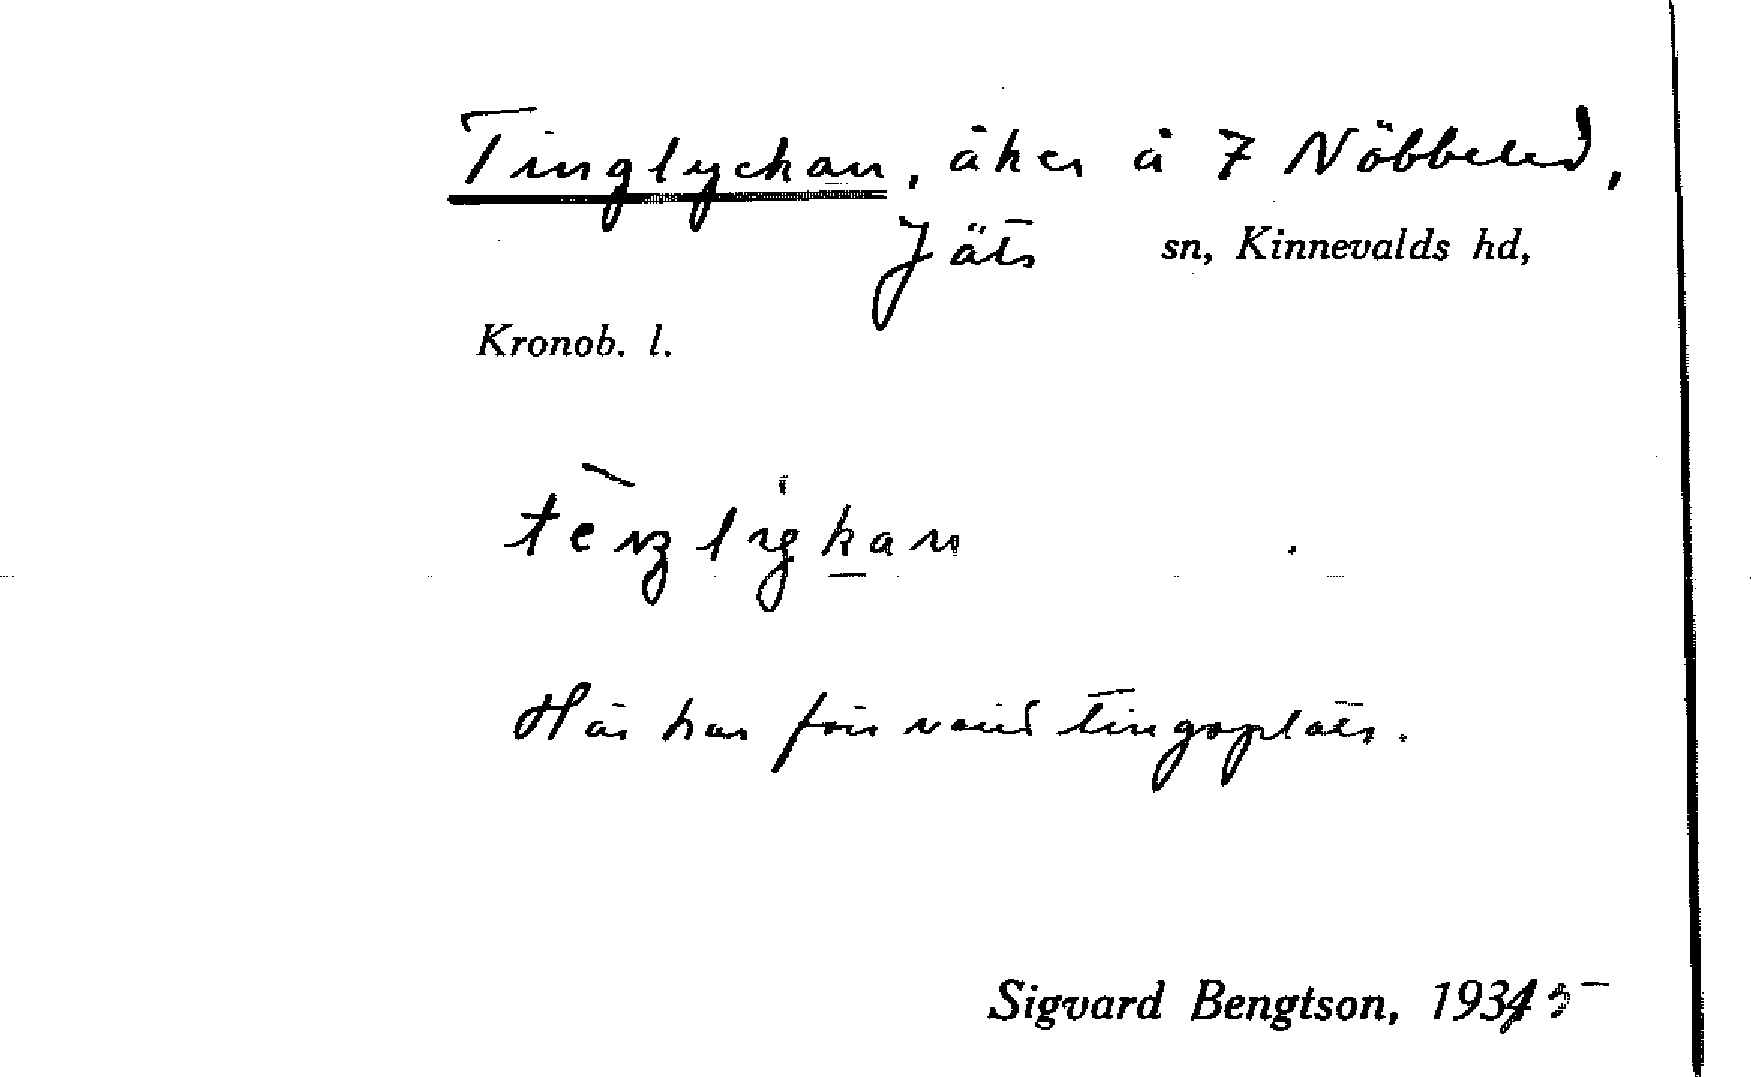 Tinglyckan, åker å 7 Nöbbeled,
Jäts sn, Kinnevalds hd,
Kronob. l.
Här har förr varit tingsplats.
Sigvard Bengtson, 1935